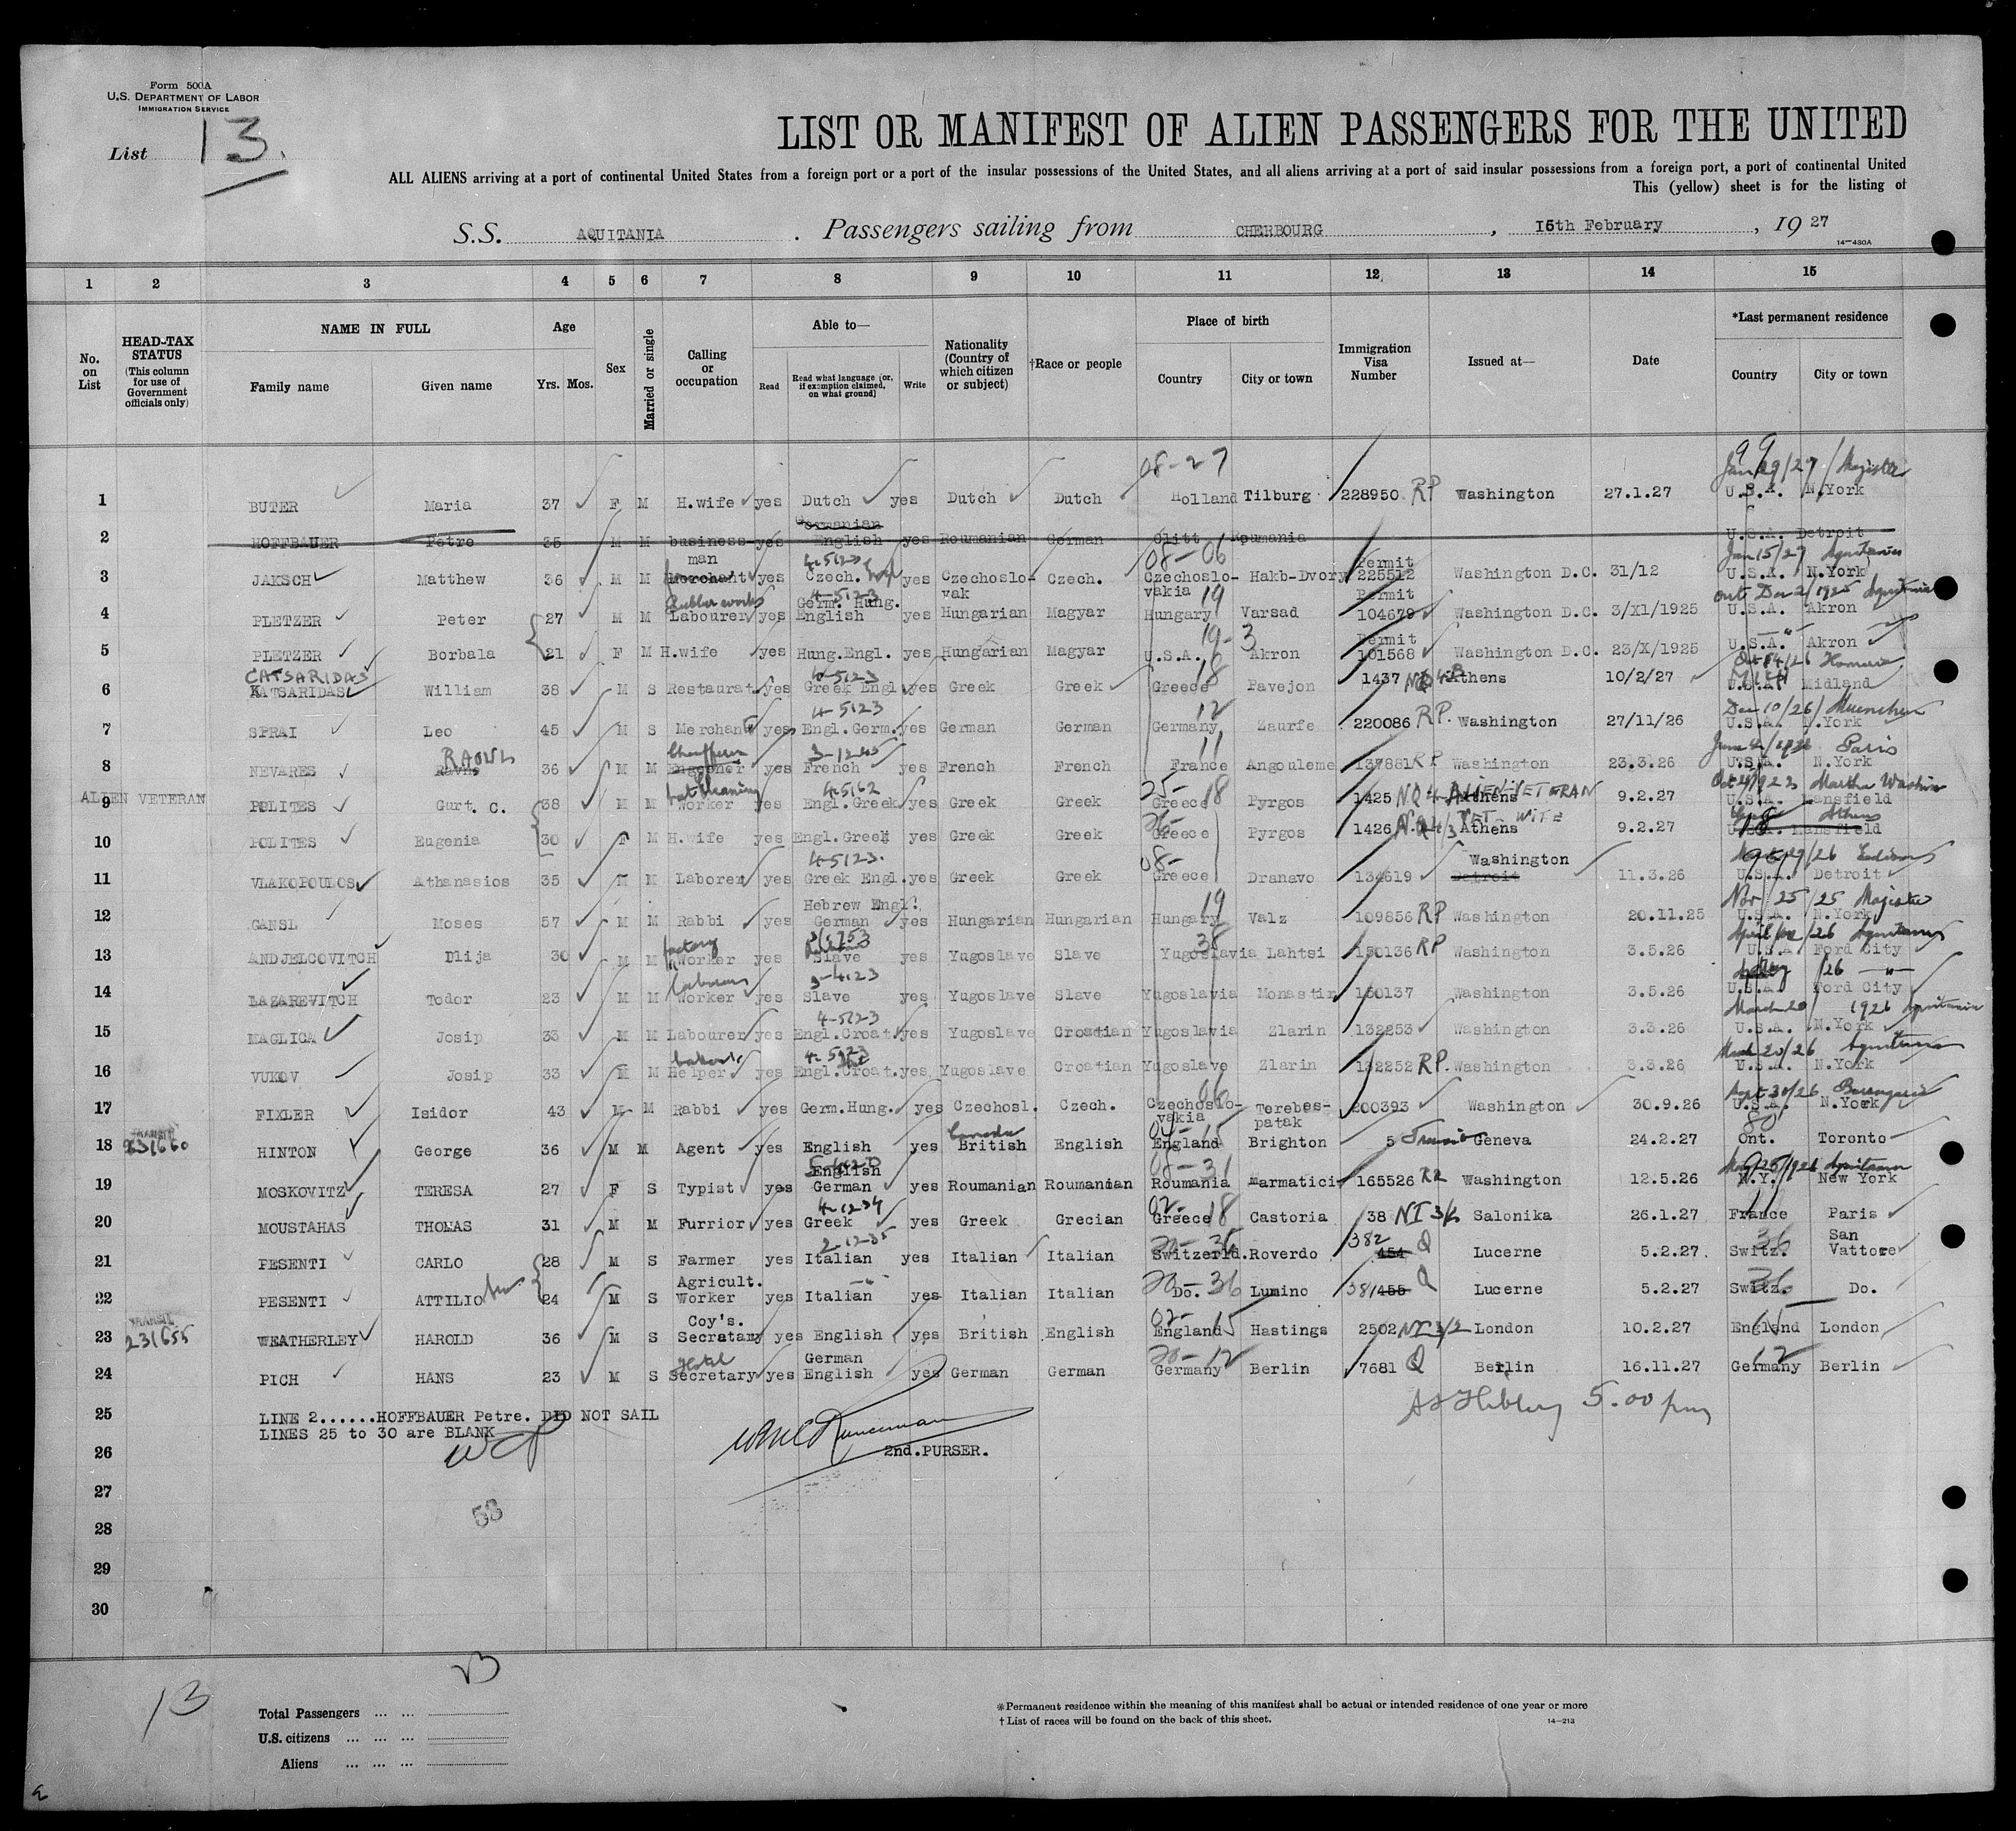 Form 500A
U.S. DEPARTMENT OF LABOR
IMMIGRATION SERVICE
List 13.
LIST OR MANIFEST OF ALIEN PASSENGERS FOR THE UNITED
ALL ALIENS arriving at a port of continental United States from a foreign port or a port of the insular possessions of the United States, and all aliens arriving at a port of said insular possessions from a foreign port, a port of continental United
This (yellow) sheet is for the listing of
S.S. AQUITANIA . Passengers sailing from CHERBOURG , 15th February , 19 27
14—430A
1 2 3 4 5 6 7 8 9 10 11 12 13 14 15
No. on List
HEAD-TAX STATUS (This column for use of Government officials only)
NAME IN FULL Family name Given name
Age Yrs. Mos.
Sex
Married or single
Calling or occupation
Able to— Read Read what language (or, if exemption claimed, on what ground) Write
Nationality (Country of which citizen or subject)
†Race or people
Place of birth Country City or town
Immigration Visa Number
Issued at—
Date
*Last permanent residence Country City or town
08-27 99 Jan 29/27 / Magistic
1 BUTER Maria 37 F M H.wife yes Dutch yes Dutch Dutch Holland Tilburg 228950 RP Washington 27.1.27 U.S.A. N.York
Germanian
2 HOFFBAUER Petre 35 M M business- yes English yes Roumanian German Glitt Roumania U.S.A. Detroit
man 4-5123 08-06 Permit Jan 15/27 Aquitania
3 JAKSCH Matthew 36 M M Merchant yes Czech. yes Czechoslo-vak Czech. Czechoslo-vakia Hakb-Dvory 225512 Washington D.C. 31/12 U.S.A. N.York
Rubber works 4-5123 Germ. Hung. 19 Permit out Dec 2/1925 Aquitania
4 PLETZER Peter 27 M M Labourer yes English yes Hungarian Magyar Hungary Varsad 104679 Washington D.C. 3/XI/1925 U.S.A. Akron
19-3 Permit
5 PLETZER Borbala 21 F M H.wife yes Hung.Engl. yes Hungarian Magyar U.S.A. Akron 101568 Washington D.C. 23/X/1925 U.S.A. Akron
CATSARIDAS 4-5123 18
6 KATSARIDAS William 38 M S Restaurat yes Greek Engl. yes Greek Greek Greece Pavejon 1437 NQ 4B Athens 10/2/27 U.S.A. Midland
4-5123 12 Dec 10/26 / Muenchen
7 SPRAI Leo 45 M S Merchant yes Engl.Germ. yes German German Germany Zaurfe 220086 RP. Washington 27/11/26 U.S.A. N.York
RAOUL Chauffeur 3-1245 11 June 4/1926 Paris
8 NEVARES 36 M M Engeener yes French yes French French France Angouleme 137881 RP Washington 23.3.26 U.S.A. N.York
ALIEN VETERAN hat cleaning 4-5162 25- 18 Oct 29/1923 Martha Washin
9 POLITES Gurt. C. 38 M M Worker yes Engl.Greek yes Greek Greek Greece Pyrgos 1425 NQ 4 ALIEN VETERAN Athens 9.2.27 U.S.A. Mansfield
VET- WIFE Athens
10 POLITES Eugenia 30 F M H.wife yes Engl.Greek yes Greek Greek Greece Pyrgos 1426 N.Q 4/3 Athens 9.2.27 U.S.A. Mansfield
4-5123. 08- Washington
11 VLAKOPOULOS Athanasios 35 M M Laborer yes Greek Engl. yes Greek Greek Greece Dranavo 134619 Detroit 11.3.26 U.S.A. Detroit
Hebrew Engl. 19 Nov 25/25 Magistic
12 GANSL Moses 57 M M Rabbi yes German yes Hungarian Hungarian Hungary Valz 109856 RP Washington 20.11.25 U.S.A. N.York
factory 38 Aquitania
13 ANDJELCOVITCH Dlija 30 M M Worker yes Slave yes Yugoslave Slave Yugoslavia Lahtsi 150136 RP Washington 3.5.26 U.S.A Ford City
labourer 3-4123 /26 —"—
14 LAZAREVITCH Todor 23 M M Worker yes Slave yes Yugoslave Slave Yugoslavia Monastir 150137 Washington 3.5.26 U.S.A. Ford City
4-5123 March 20 1926 Aquitania
15 MAGLICA Josip 33 M M Labourer yes Engl.Croat. yes Yugoslave Croatian Yugoslavia Zlarin 132253 Washington 3.3.26 U.S.A. N.York
4-5123 March 20/26 Aquitania
16 VUKOV Josip 33 M M Helper yes Engl.Croat. yes Yugoslave Croatian Yugoslave Zlarin 132252 RP. Washington 3.3.26 U.S.A. N.York
06 Sept 30/26 Berengaria
17 FIXLER Isidor 43 M M Rabbi yes Germ.Hung. yes Czechosl. Czech. Czechoslo-vakia Terebes-patak 200393 Washington 30.9.26 U.S.A. N.York
TRANSIT Canada 04-15 80
18 231660 HINTON George 36 M M Agent yes English yes British English England Brighton 5 Transit Geneva 24.2.27 Ont. Toronto
English 08-31 May 25/1926 Aquitania
19 MOSKOVITZ TERESA 27 F S Typist yes German yes Roumanian Roumanian Roumania Marmatici 165526 RP Washington 12.5.26 N.Y. New York
4-1234 02- 18 11
20 MOUSTAHAS THOMAS 31 M M Furrior yes Greek yes Greek Grecian Greece Castoria 38 NI 3/2 Salonika 26.1.27 France Paris
2-1235 20-36 382 36 San
21 PESENTI CARLO 28 M S Farmer yes Italian yes Italian Italian Switzerld. Roverdo 454 Q Lucerne 5.2.27. Switz. Vattore
Agricult. —"— 20-36 36
22 PESENTI ATTILIO 24 M S Worker yes Italian yes Italian Italian Do. Lumino 381 455 Q Lucerne 5.2.27 Switz. Do.
TRANSIT Coy's. 02-15 15
23 231655 WEATHERLEY HAROLD 36 M S Secretary yes English yes British English England Hastings 2502 NI 3/2 London 10.2.27 England London
Hotel German 20-12 12
24 PICH HANS 23 M S Secretary yes English yes German German Germany Berlin 7681 Q Berlin 16.11.27 Germany Berlin
25 LINE 2......HOFFBAUER Petre. DID NOT SAIL 5.00 pm
LINES 25 to 30 are BLANK
26 2nd.PURSER.
27
58
28
29
30
13
Total Passengers ... ... 23
U.S. citizens ... ... ...
Aliens ... ... ...
*Permanent residence within the meaning of this manifest shall be actual or intended residence of one year or more
† List of races will be found on the back of this sheet.
14—213